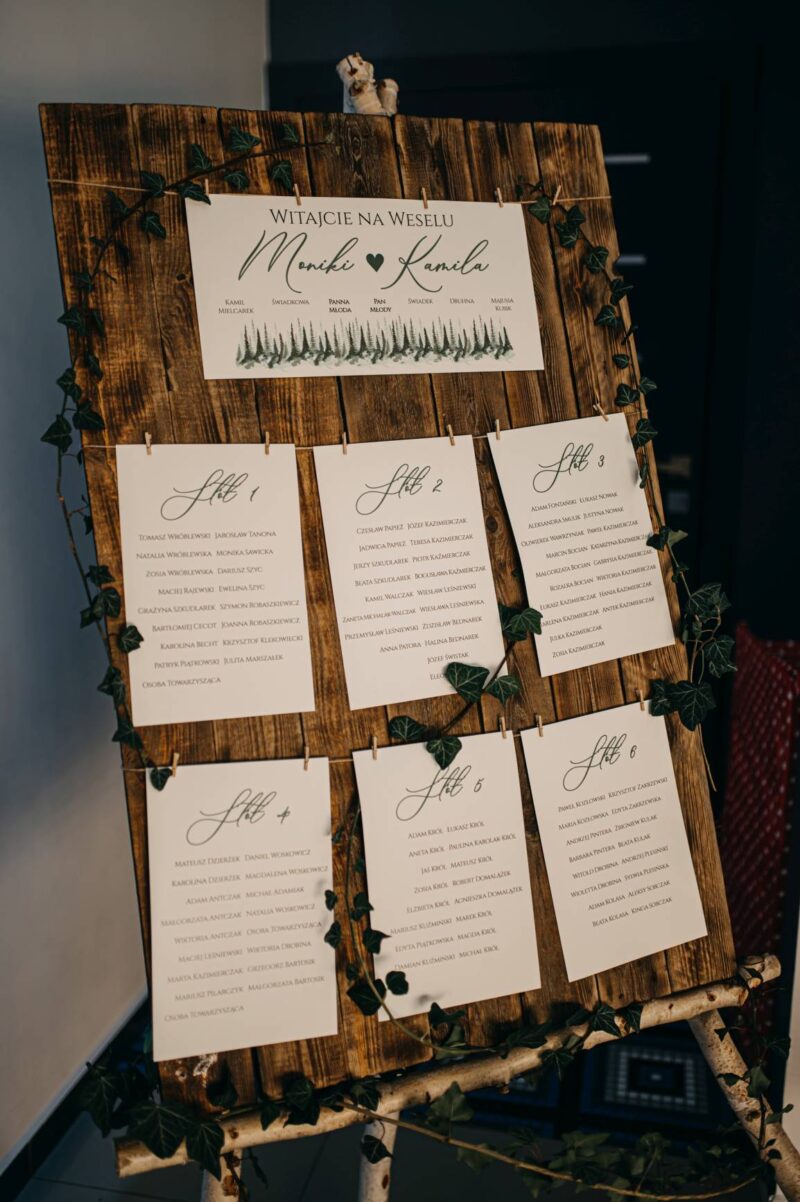 Witajcie na Weselu
Moniki Kamila
Kamil Świadkowa Panna Pan Świadek Druhna Mariusa
Mielcarek Młoda Młody Kubik
Stół 1
Tomasz Wróblewski Jarosław Tanona
Natalia Wróblewska Monika Sawicka
Zosia Wróblewska Dariusz Szyc
Maciej Rajewski Ewelina Szyc
Grażyna Szkudlarek Szymon Robaszkiewicz
Bartłomiej Cecot Joanna Robaszkiewicz
Karolina Becht Krzysztof Klekowiecki
Patryk Piątkowski Julita Marszałek
Osoba Towarzysząca
Stół 2
Czesław Papież Józef Kazimierczak
Jadwiga Papież Teresa Kazimierczak
Jerzy Szkudlarek Piotr Kazimierczak
Beata Szkudlarek Bogusława Kazimierczak
Kamil Walczak Wiesław Leśniewski
Żaneta Michalak Walczak Wiesława Leśniewska
Przemysław Leśniewski Zdzisław Bednarek
Anna Patora Halina Bednarek
Józef Świstak
Stół 3
Adam Fontański Łukasz Nowak
Aleksandra Smulik Justyna Nowak
Oliwierek Wawrzyniak Paweł Kazimierczak
Marcin Bocian Katarzyna Kazimierczak
Małgorzata Bocian Gabrysia Kazimierczak
Rozalka Bocian Wiktoria Kazimierczak
Łukasz Kazimierczak Hania Kazimierczak
Marlena Kazimierczak Antek Kazimierczak
Julka Kazimierczak
Zosia Kazimierczak
Stół 4
Mateusz Dzierżek Daniel Woskowicz
Karolina Dzierżek Magdalena Woskowicz
Adam Antczak Michał Adamiak
Małgorzata Antczak Natalia Woskowicz
Wiktoria Antczak Osoba Towarzysząca
Maciej Leśniewski Wiktoria Drobina
Marta Kazimierczak Grzegorz Bartosik
Mariusz Pilarczyk Małgorzata Bartosik
Osoba Towarzysząca
Stół 5
Adam Król Łukasz Król
Aneta Król Paulina Karolak Król
Jaś Król Mateusz Król
Zosia Król Robert Domalążek
Elżbieta Król Agnieszka Domalążek
Mariusz Kuźmiński Marek Król
Edyta Piątkowska Magda Król
Damian Kuźmiński Michał Król
Stół 6
Paweł Kozłowski Krzysztof Zakrzewski
Maria Kozłowska Edyta Zakrzewska
Andrzej Pintera Zbigniew Kułak
Barbara Pintera Beata Kułak
Witold Drobina Andrzej Plesiński
Wioletta Drobina Sylwia Plesińska
Adam Kolasa Aleksy Sobczak
Beata Kolasa Kinga Sobczak